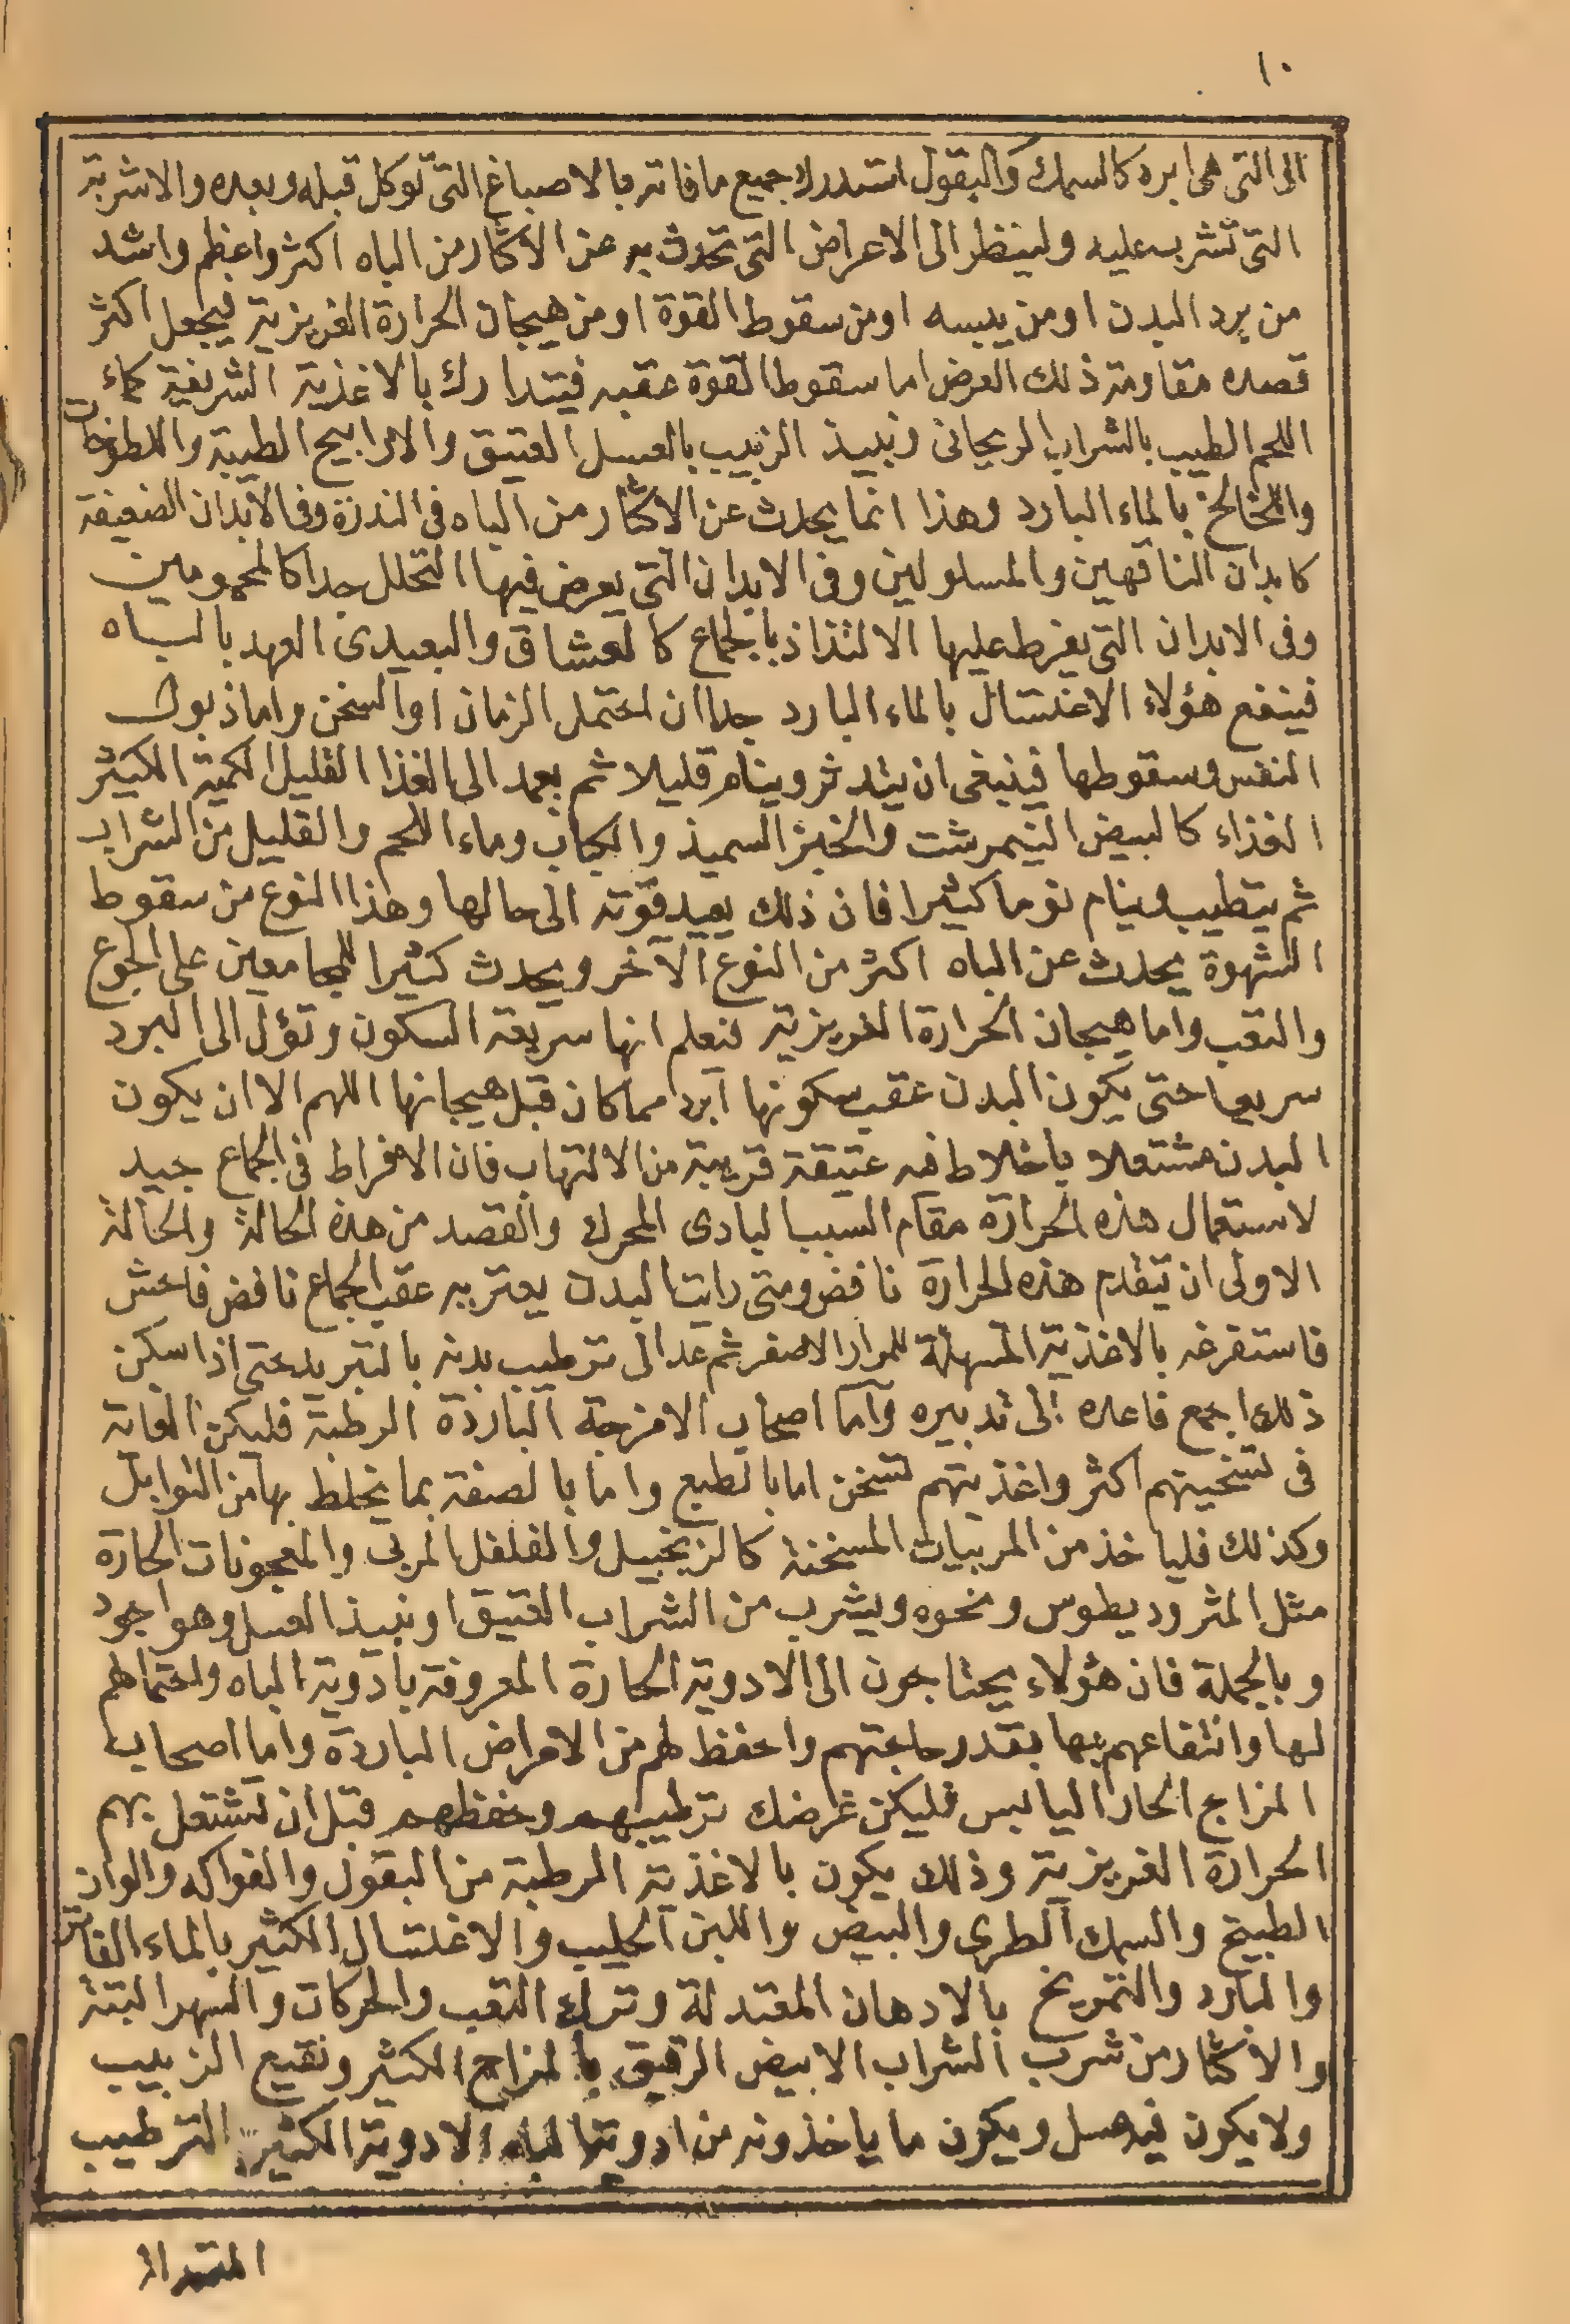 ١٠
الى التى هى ابرد كالسمك والبقول استدرك جميع ما فاته بالاصباغ التى توكل قبله وبعده والاشربة
التى تشرب عليه ولينظر الى الاعراض التى تحدث به عن الاكثار من الباه اكثر واعظم واشد
من برد البدن او من يبسه او من سقوط القوة او من هيجان الحرارة الغريزية فيجعل اكثر
قصده مقاومة ذلك العرض اما سقوط القوة عقبه فيتدارك بالاغذية الشريفة كماء
اللحم الطيب بالشراب الريحانى ونبيذ الزبيب بالعسل العتيق والاراييح الطيبة واللطوخات
واللخالخ بالماء البارد وهذا انما يحدث عن الاكثار من الباه فى الندرة وفى الابدان الضعيفة
كابدان الناقهين والمسلولين وفى الابدان التى يعرض فيها التحلل جدا كالمحمومين
وفى الابدان التى يفرط عليها الالتذاذ بالجماع كالعشاق والبعيدى العهد بالباه
فينفع هؤلاء الاغتسال بالماء البارد جدا ان احتمل الزمان او السخن واما ذبول
النفس وسقوطها فينبغى ان يتدثر وينام قليلا ثم يعمد الى الغذا القليل الكمية الكثير
الغذاء كالبيض النيمرشت والخبز السميذ والكباب وماء اللحم والقليل من الشراب
ثم يتطيب وينام نوما كثيرا فان ذلك يعيد قوته الى حالها وهذا النوع من سقوط
الشهوة يحدث عن الباه اكثر من النوع الآخر ويحدث كثيرا للمجامعين على الجوع
والتعب واما هيجان الحرارة الغريزية فنعلم انها سريعة السكون وتؤل الى البرد
سريعا حتى يكون البدن عقب سكونها ابرد مما كان قبل هيجانها اللهم الا ان يكون
البدن مشتعلا باخلاط فيه عتيقة قريبة من الالتهاب فان الافراط فى الجماع جيد
لاستعمال هذه الحرارة مقام السبب البادى المحرك والقصد من هذه الحالة والحالة
الاولى ان تيقدم هذه الحرارة نافض ومتى رايت البدن يعتريه عقب الجماع نافض فاحش
فاستفرغه بالاغذية المسهلة للمرار الاصفر ثم عد الى ترطيب بدنه بالتبريد حتى اذا سكن
ذلك اجمع فاعده الى تدبيره واما اصحاب الامزجة الباردة الرطبة فليكن العناية
فى تسخينهم اكثر واغذيتهم تسخن اما بالطبع واما بالصنعة بما يخلط بها من التوابل
وكذلك فلياخذ من المربيات المسخنة كالزنجبيل والفلفل المربى والمعجونات الحارة
مثل المثروديطوس ونحوه ويشرب من الشراب العتيق او نبيذ العسل وهو اجود
وبالجملة فان هؤلاء يحتاجون الى الادوية الحارة المعروفة بادوية الباه واحتمالهم
لها وانتفاعهم بها بقدر حاجتهم واحفظ لهم من الامراض الباردة واما اصحاب
المزاج الحار اليابس فليكن غرضك ترطيبهم وحفظهم قبل ان تشتعل بهم
الحرارة الغريزية وذلك يكون بالاغذية المرطبة من البقول والفواكه والوان
الطبيخ والسمك الطرى والبيض واللبن الحليب والاغتسال الكثير بالماء الفاتر
والبارد والتمريخ بالادهان المعتدلة وترك التعب والحركات والسهر البتة
والاكثار من شرب الشراب الابيض الرقيق بالمزاج الكثير ونقيع الزبيب
ولا يكون فيه عسل ويكون ما ياخذونه من ادوية الباه الادوية الكثير الترطيب